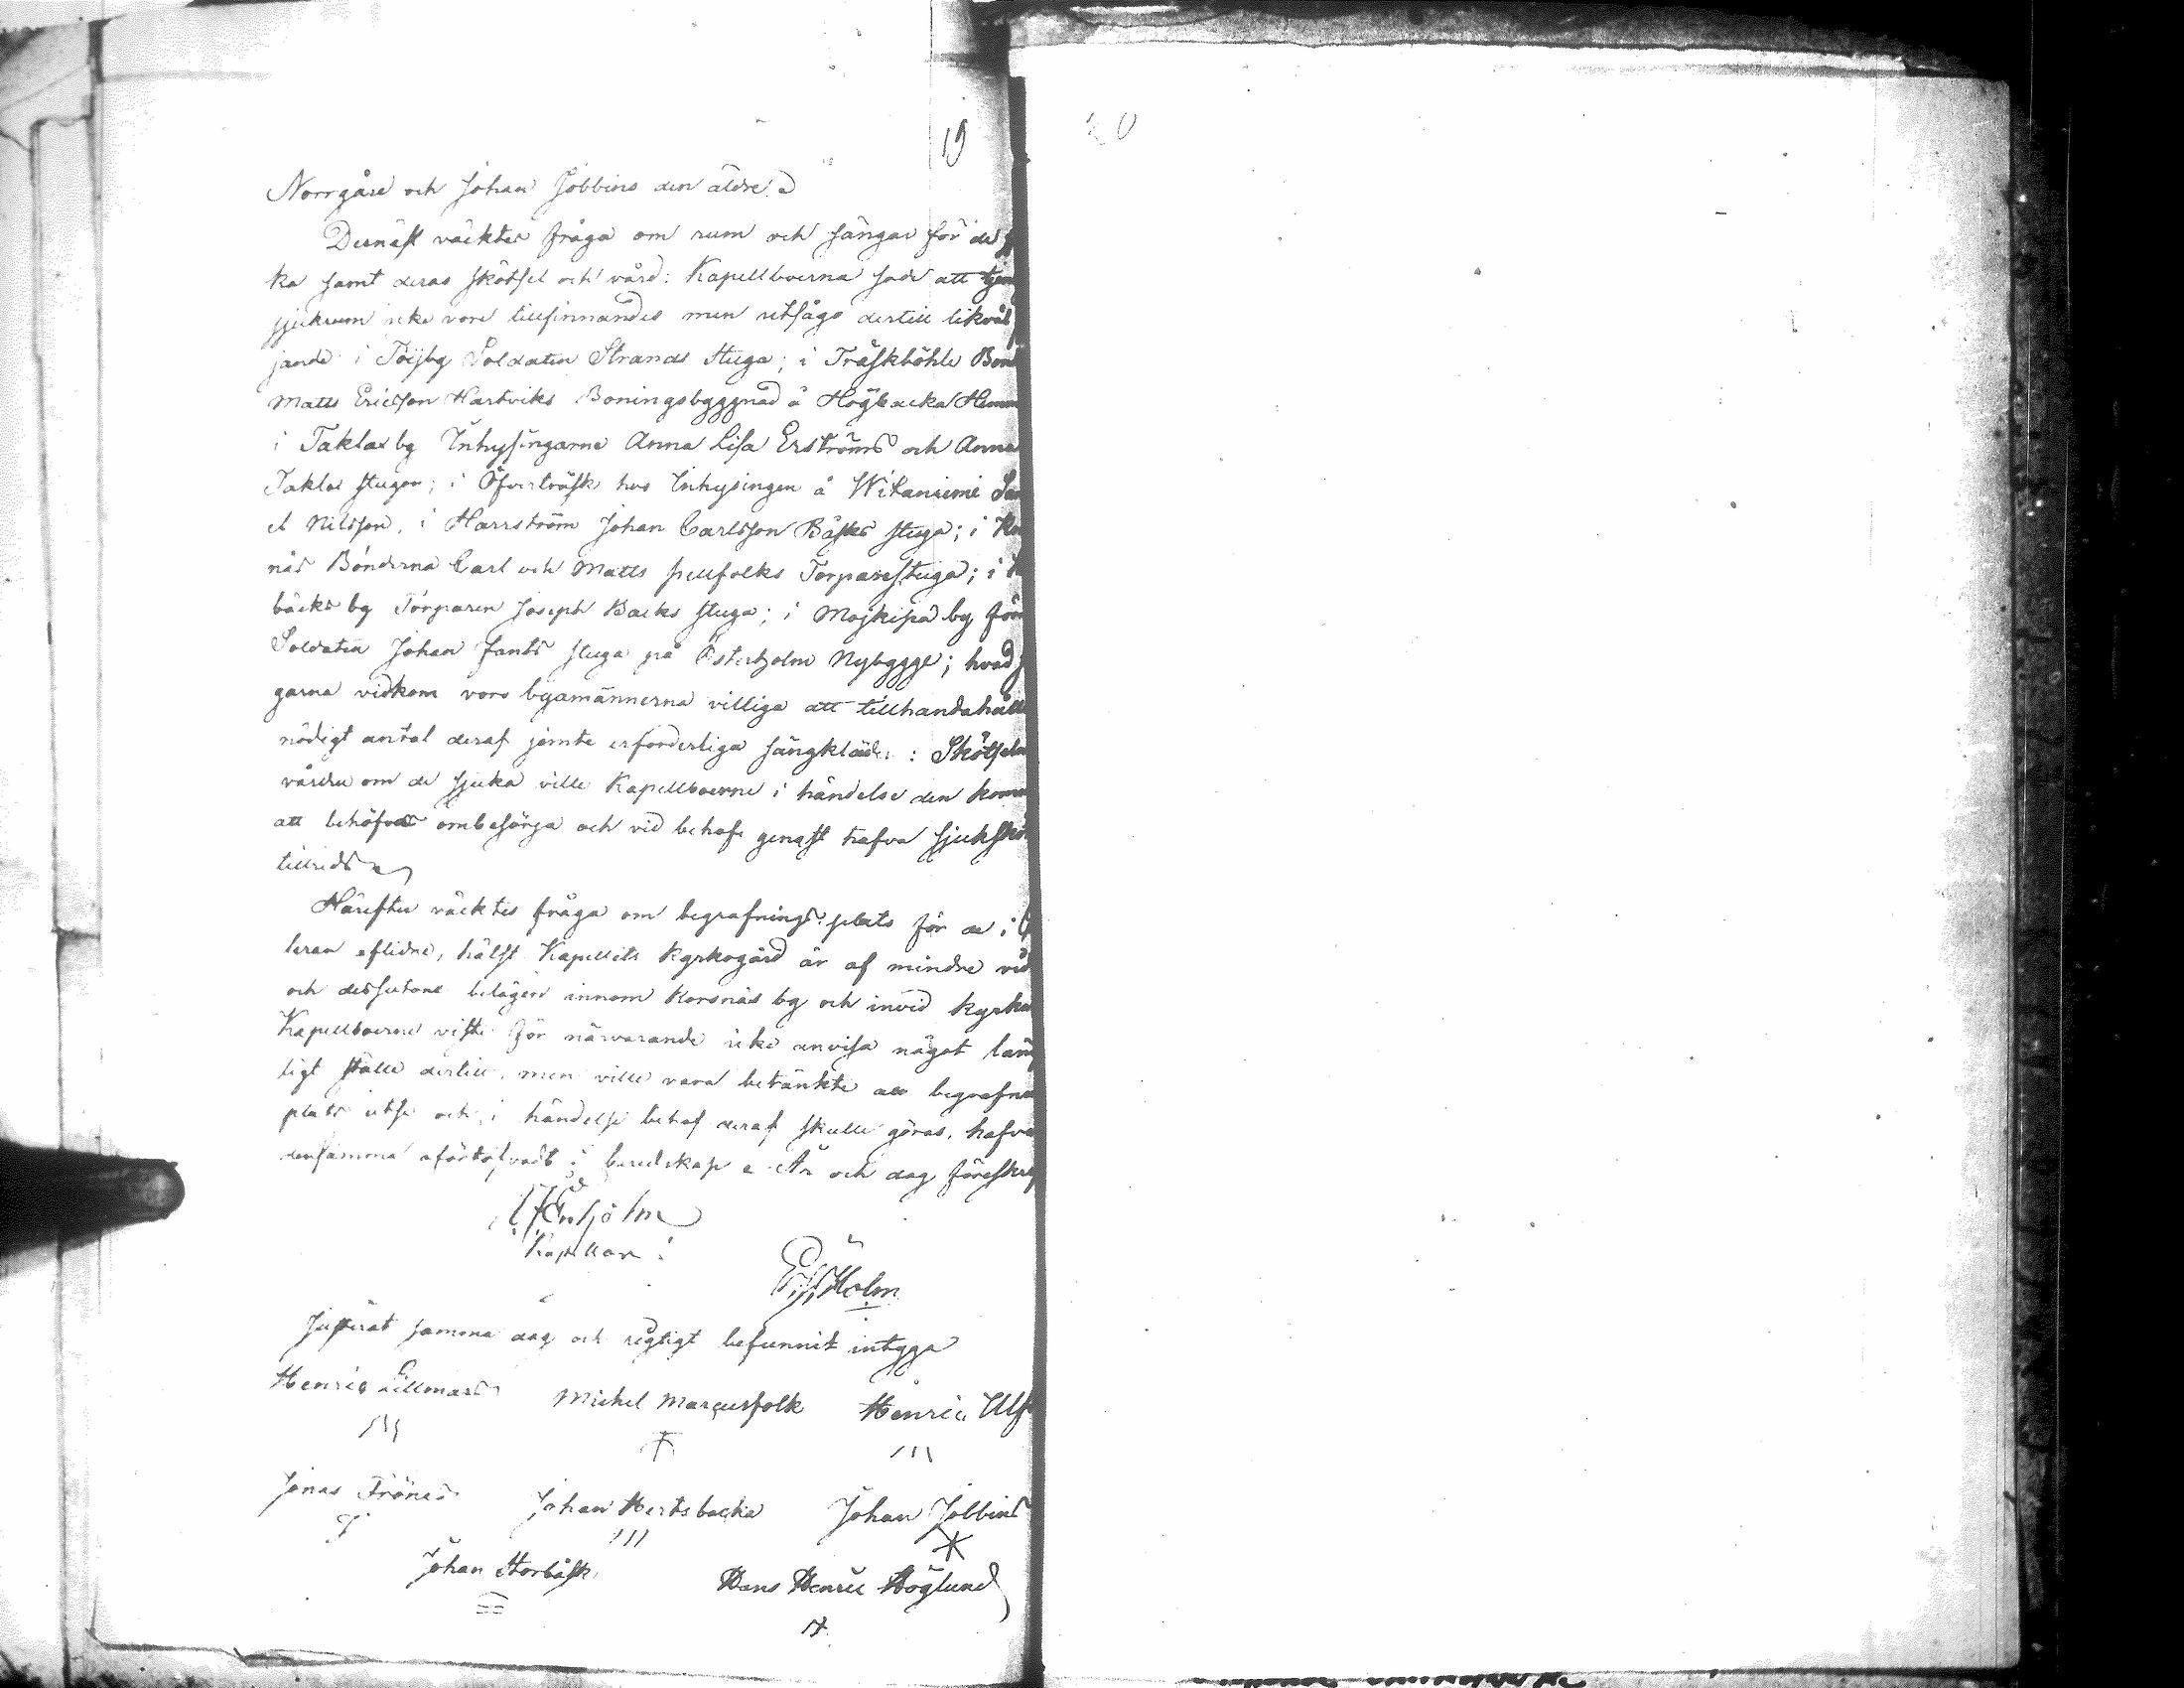 19
20
Norrgård och Johan Jobbins den äldre
Dernäst väcktes fråga om rum och sängar för de sju
ka samt deras skötsel och vård: Kapellboerna sade att
sjukrum icke vore tillfinnandes men utsågs dertill likväl
jande i Töijby Soldaten Strands stuga; i Träskböhle Bon
Matts Ericsson Hartviks Boningsbyggnad å Högbacka Hemm
i Taklax by Inhysingarne Anna Lisa Erströms och Anna
Taklax stugor; i Öfverträsk hos Inhysingen å Witaniemi
el Nilsson, i Harrström Johan Carlsson Bäsks stuga; i Kor
näs Bönderna Carl och Matts Juufolks Torparestuga; i
bäcks by Torparen Joseph Backs stuga; i Mojkipä by
Soldaten Johan Fants stuga på Österholm Nybygge; hvad
garna vidkom voro byamännerna villiga att tillhandahålla
nödigt antal deraf jemte erforderliga sängkläder: Skötseln
vården om de sjuka ville Kapellboerne i händelse den komm
att behöfvas ombesörja och vid behof genast hafva sjuksköt
tillreds
Härefter väcktes fråga om begrafnings plats för de i
leran aflidne, hälst Kapellets Kyrkogård är af mindre vid
och dessutom belägen innom Korsnäs by och invid kyrkan
Kapellboerne viste för närvarande icke anvisa något läm
ligt ställe dertill, men ville vara betänkte att begrafn
plats utse och i händelse behof deraf skulle göras, hafva
densamma oförtöfvadt i beredskap År och dag föreskrif
Kapellan
Holm
Justerat samma dag och rigtigt befunnit intyga
Henric Lillmars Michel Marcusfolk Henric Ulf
Jonas Frönäs Johan Hertsbacka Johan Jobbins
Johan Storbäsk Hans Henric Höglund